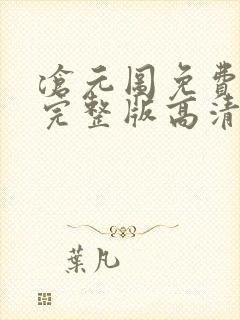 滄元圖免費
完整版高清
葉凡